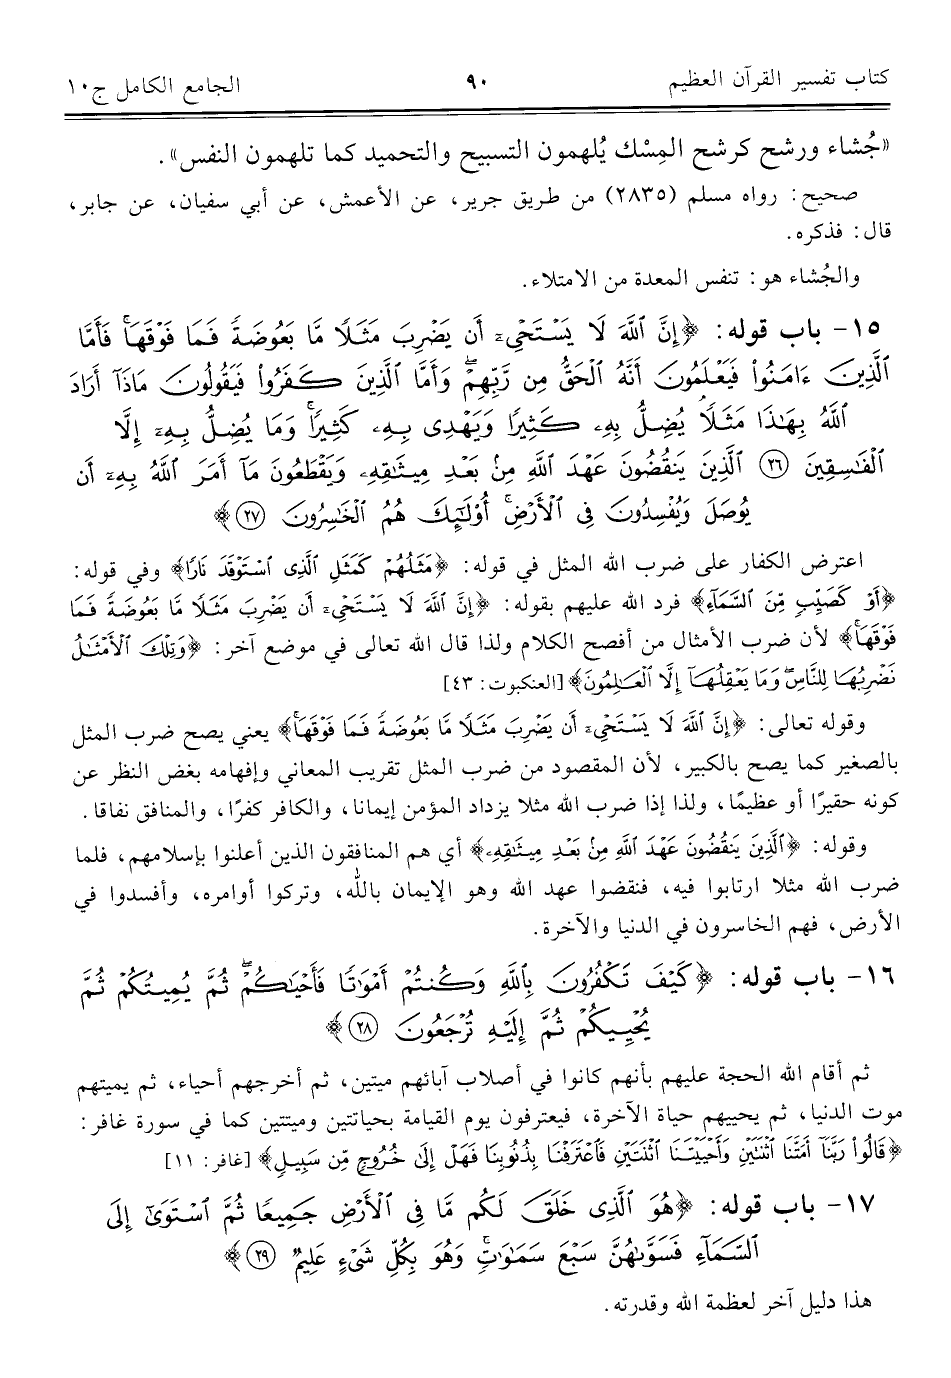 كتاب تفسير القرآن العظيم ٩٠ الجامع الكامل ج١٠
«جُشاء ورشح كرشح المِسْك يُلهمون التسبيح والتحميد كما تلهمون النفس».
صحيح: رواه مسلم (٢٨٣٥) من طريق جرير، عن الأعمش، عن أبي سفيان، عن جابر،
قال: فذكره.
والجُشاء هو: تنفس المعدة من الامتلاء.
١٥- باب قوله: ﴿إِنَّ ٱللَّهَ لَا يَسْتَحْىِۦٓ أَن يَضْرِبَ مَثَلًا مَّا بَعُوضَةً فَمَا فَوْقَهَا ۚ فَأَمَّا
ٱلَّذِينَ ءَامَنُوا۟ فَيَعْلَمُونَ أَنَّهُ ٱلْحَقُّ مِن رَّبِّهِمْ ۖ وَأَمَّا ٱلَّذِينَ كَفَرُوا۟ فَيَقُولُونَ مَاذَآ أَرَادَ
ٱللَّهُ بِهَـٰذَا مَثَلًا ۘ يُضِلُّ بِهِۦ كَثِيرًا وَيَهْدِى بِهِۦ كَثِيرًا ۚ وَمَا يُضِلُّ بِهِۦٓ إِلَّا
ٱلْفَـٰسِقِينَ ﴿٢٦﴾ ٱلَّذِينَ يَنقُضُونَ عَهْدَ ٱللَّهِ مِنۢ بَعْدِ مِيثَـٰقِهِۦ وَيَقْطَعُونَ مَآ أَمَرَ ٱللَّهُ بِهِۦٓ أَن
يُوصَلَ وَيُفْسِدُونَ فِى ٱلْأَرْضِ ۚ أُو۟لَـٰٓئِكَ هُمُ ٱلْخَـٰسِرُونَ ﴿٢٧﴾﴾
اعترض الكفار على ضرب الله المثل في قوله: ﴿مَثَلُهُمْ كَمَثَلِ ٱلَّذِى ٱسْتَوْقَدَ نَارًا﴾ وفي قوله:
﴿أَوْ كَصَيِّبٍ مِّنَ ٱلسَّمَآءِ﴾ فرد الله عليهم بقوله: ﴿إِنَّ ٱللَّهَ لَا يَسْتَحْىِۦٓ أَن يَضْرِبَ مَثَلًا مَّا بَعُوضَةً فَمَا
فَوْقَهَا ۚ﴾ لأن ضرب الأمثال من أفصح الكلام ولذا قال الله تعالى في موضع آخر: ﴿وَتِلْكَ ٱلْأَمْثَـٰلُ
نَضْرِبُهَا لِلنَّاسِ ۖ وَمَا يَعْقِلُهَآ إِلَّا ٱلْعَـٰلِمُونَ﴾ [العنكبوت: ٤٣]
وقوله تعالى: ﴿إِنَّ ٱللَّهَ لَا يَسْتَحْىِۦٓ أَن يَضْرِبَ مَثَلًا مَّا بَعُوضَةً فَمَا فَوْقَهَا ۚ﴾ يعني يصح ضرب المثل
بالصغير كما يصح بالكبير، لأن المقصود من ضرب المثل تقريب المعاني وإفهامه بغض النظر عن
كونه حقيرًا أو عظيمًا، ولذا إذا ضرب الله مثلا يزداد المؤمن إيمانا، والكافر كفرًا، والمنافق نفاقا.
وقوله: ﴿ٱلَّذِينَ يَنقُضُونَ عَهْدَ ٱللَّهِ مِنۢ بَعْدِ مِيثَـٰقِهِۦ﴾ أي هم المنافقون الذين أعلنوا بإسلامهم، فلما
ضرب الله مثلا ارتابوا فيه، فنقضوا عهد الله وهو الإيمان بالله، وتركوا أوامره، وأفسدوا في
الأرض، فهم الخاسرون في الدنيا والآخرة.
١٦- باب قوله: ﴿كَيْفَ تَكْفُرُونَ بِٱللَّهِ وَكُنتُمْ أَمْوَٰتًا فَأَحْيَـٰكُمْ ۖ ثُمَّ يُمِيتُكُمْ ثُمَّ
يُحْيِيكُمْ ثُمَّ إِلَيْهِ تُرْجَعُونَ ﴿٢٨﴾﴾
ثم أقام الله الحجة عليهم بأنهم كانوا في أصلاب آبائهم ميتين، ثم أخرجهم أحياء، ثم يميتهم
موت الدنيا، ثم يحييهم حياة الآخرة، فيعترفون يوم القيامة بحياتين وميتتين كما في سورة غافر:
﴿قَالُوا۟ رَبَّنَآ أَمَتَّنَا ٱثْنَتَيْنِ وَأَحْيَيْتَنَا ٱثْنَتَيْنِ فَٱعْتَرَفْنَا بِذُنُوبِنَا فَهَلْ إِلَىٰ خُرُوجٍ مِّن سَبِيلٍ﴾ [غافر: ١١]
١٧- باب قوله: ﴿هُوَ ٱلَّذِى خَلَقَ لَكُم مَّا فِى ٱلْأَرْضِ جَمِيعًا ثُمَّ ٱسْتَوَىٰٓ إِلَى
ٱلسَّمَآءِ فَسَوَّىٰهُنَّ سَبْعَ سَمَـٰوَٰتٍ ۚ وَهُوَ بِكُلِّ شَىْءٍ عَلِيمٌ ﴿٢٩﴾﴾
هذا دليل آخر لعظمة الله وقدرته.